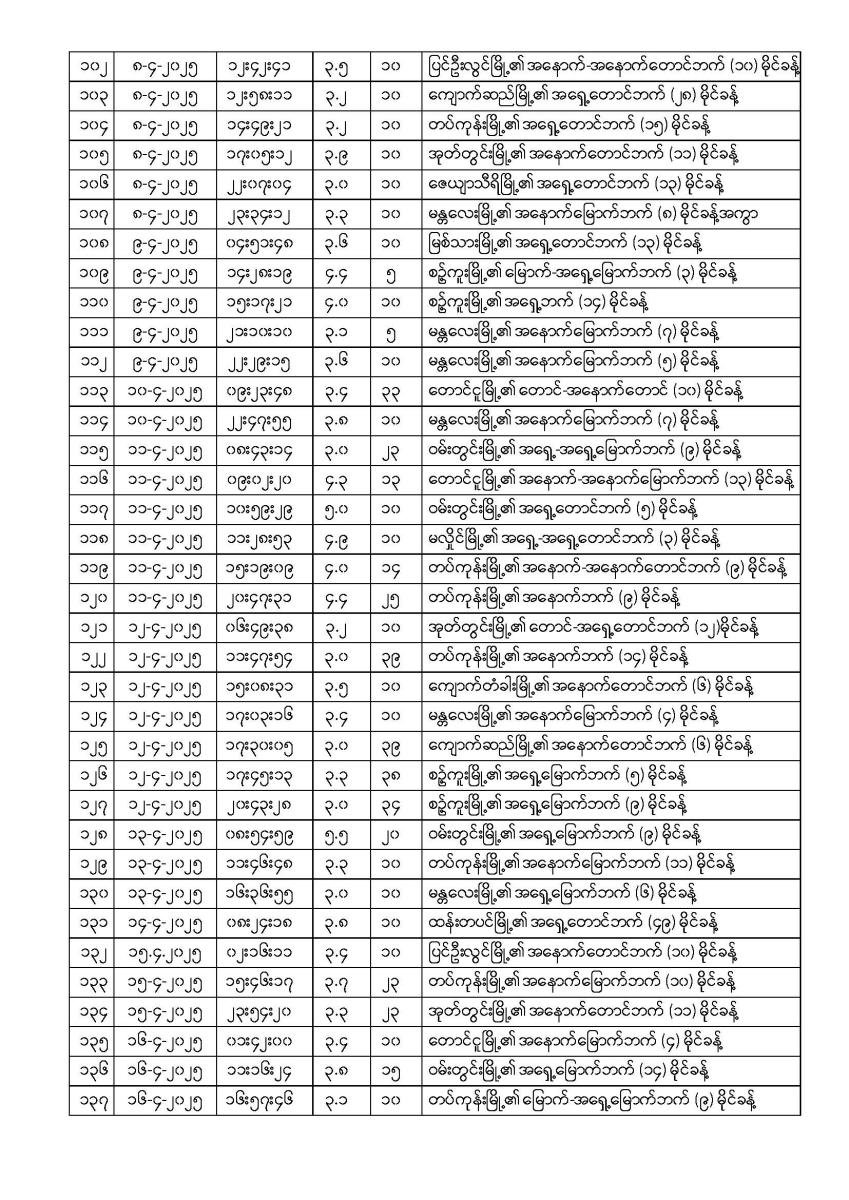 ၁၀၂ ၈-၄-၂၀၂၅ ၁၂း၄၂း၄၁ ၃.၅ ၁၀ ပြင်ဦးလွင်မြို့၏ အနောက်-အနောက်တောင်ဘက် (၁၀) မိုင်ခန့်
၁၀၃ ၈-၄-၂၀၂၅ ၁၂း၅၈း၁၁ ၃.၂ ၁၀ ကျောက်ဆည်မြို့၏ အရှေ့တောင်ဘက် (၂၈) မိုင်ခန့်
၁၀၄ ၈-၄-၂၀၂၅ ၁၄း၄၉း၂၁ ၃.၂ ၁၀ တပ်ကုန်းမြို့၏ အရှေ့တောင်ဘက် (၁၅) မိုင်ခန့်
၁၀၅ ၈-၄-၂၀၂၅ ၁၇း၀၅း၁၂ ၃.၉ ၁၀ အုတ်တွင်းမြို့၏ အနောက်တောင်ဘက် (၁၁) မိုင်ခန့်
၁၀၆ ၈-၄-၂၀၂၅ ၂၂း၀၇း၀၄ ၃.၀ ၁၀ ဇေယျာသီရိမြို့၏ အရှေ့တောင်ဘက် (၁၃) မိုင်ခန့်
၁၀၇ ၈-၄-၂၀၂၅ ၂၃း၃၄း၁၂ ၃.၃ ၁၀ မန္တလေးမြို့၏ အနောက်မြောက်ဘက် (၈) မိုင်ခန့်အကွာ
၁၀၈ ၉-၄-၂၀၂၅ ၀၄း၅၁း၄၈ ၃.၆ ၁၀ မြစ်သားမြို့၏ အရှေ့တောင်ဘက် (၁၃) မိုင်ခန့်
၁၀၉ ၉-၄-၂၀၂၅ ၁၄း၂၈း၁၉ ၄.၄ ၅ စဉ့်ကူးမြို့၏ မြောက်-အရှေ့မြောက်ဘက် (၃) မိုင်ခန့်
၁၁၀ ၉-၄-၂၀၂၅ ၁၅း၁၇း၂၁ ၄.၀ ၁၀ စဉ့်ကူးမြို့၏ အရှေ့ဘက် (၁၄) မိုင်ခန့်
၁၁၁ ၉-၄-၂၀၂၅ ၂၁း၁၀း၁၀ ၃.၁ ၅ မန္တလေးမြို့၏ အနောက်မြောက်ဘက် (၇) မိုင်ခန့်
၁၁၂ ၉-၄-၂၀၂၅ ၂၂း၂၉း၁၅ ၃.၆ ၁၀ မန္တလေးမြို့၏ အနောက်မြောက်ဘက် (၅) မိုင်ခန့်
၁၁၃ ၁၀-၄-၂၀၂၅ ၀၉း၂၃း၄၈ ၃.၄ ၃၃ တောင်ငူမြို့၏ တောင်-အနောက်တောင် (၁၀) မိုင်ခန့်
၁၁၄ ၁၀-၄-၂၀၂၅ ၂၂း၄၇း၅၅ ၃.၈ ၁၀ မန္တလေးမြို့၏ အနောက်မြောက်ဘက် (၇) မိုင်ခန့်
၁၁၅ ၁၁-၄-၂၀၂၅ ၀၈း၄၃း၁၄ ၃.၀ ၂၃ ဝမ်းတွင်းမြို့၏ အရှေ့-အရှေ့မြောက်ဘက် (၉) မိုင်ခန့်
၁၁၆ ၁၁-၄-၂၀၂၅ ၀၉း၀၂း၂၀ ၄.၃ ၁၃ တောင်ငူမြို့၏ အနောက်-အနောက်မြောက်ဘက် (၁၃) မိုင်ခန့်
၁၁၇ ၁၁-၄-၂၀၂၅ ၁၀း၅၉း၂၉ ၅.၀ ၁၀ ဝမ်းတွင်းမြို့၏ အရှေ့တောင်ဘက် (၅) မိုင်ခန့်
၁၁၈ ၁၁-၄-၂၀၂၅ ၁၁း၂၈း၅၃ ၄.၉ ၁၀ မလှိုင်မြို့၏ အရှေ့-အရှေ့တောင်ဘက် (၃) မိုင်ခန့်
၁၁၉ ၁၁-၄-၂၀၂၅ ၁၅း၁၉း၀၉ ၄.၀ ၁၄ တပ်ကုန်းမြို့၏ အနောက်-အနောက်တောင်ဘက် (၉) မိုင်ခန့်
၁၂၀ ၁၁-၄-၂၀၂၅ ၂၀း၄၇း၃၁ ၄.၄ ၂၅ တပ်ကုန်းမြို့၏ (၉) မိုင်ခန့်
၁၂၁ ၁၂-၄-၂၀၂၅ ၀၆း၄၉း၃၈ ၃.၂ ၁၀ အုတ်တွင်းမြို့၏ တောင်-အရှေ့တောင်ဘက် (၁၂)မိုင်ခန့်
၁၂၂ ၁၂-၄-၂၀၂၅ ၁၁း၄၇း၅၄ ၃.၀ ၃၉ တပ်ကုန်းမြို့၏ အနောက်ဘက် (၁၄) မိုင်ခန့်
၁၂၃ ၁၂-၄-၂၀၂၅ ၁၅း၀၈း၃၁ ၃.၅ ၁၀ ကျောက်တံခါးမြို့၏ အနောက်တောင်ဘက် (၆) မိုင်ခန့်
၁၂၄ ၁၂-၄-၂၀၂၅ ၁၇း၀၃း၁၆ ၃.၄ ၁၀ မန္တလေးမြို့၏ အနောက်မြောက်ဘက် (၄) မိုင်ခန့်
၁၂၅ ၁၂-၄-၂၀၂၅ ၁၇း၃၀း၀၅ ၃.၀ ၃၉ ကျောက်ဆည်မြို့၏ အနောက်တောင်ဘက် (၆) မိုင်ခန့်
၁၂၆ ၁၂-၄-၂၀၂၅ ၁၇း၄၅း၁၃ ၃.၃ ၃၈ စဉ့်ကူးမြို့၏ အရှေ့မြောက်ဘက် (၅) မိုင်ခန့်
၁၂၇ ၁၂-၄-၂၀၂၅ ၂၀း၄၃း၂၈ ၃.၀ ၃၄ စဉ့်ကူးမြို့၏ အရှေ့မြောက်ဘက် (၉) မိုင်ခန့်
၁၂၈ ၁၃-၄-၂၀၂၅ ၀၈း၅၄း၅၉ ၅.၅ ၂၀ ဝမ်းတွင်းမြို့၏ အရှေ့မြောက်ဘက် (၉) မိုင်ခန့်
၁၂၉ ၁၃-၄-၂၀၂၅ ၁၁း၄၆း၄၈ ၃.၃ ၁၀ တပ်ကုန်းမြို့၏ အနောက်မြောက်ဘက် (၁၁) မိုင်ခန့်
၁၃၀ ၁၃-၄-၂၀၂၅ ၁၆း၃၆း၅၅ ၃.၀ ၁၀ မန္တလေးမြို့၏ အရှေ့မြောက်ဘက် (၆) မိုင်ခန့်
၁၃၁ ၁၄-၄-၂၀၂၅ ၀၈း၂၄း၁၈ ၃.၈ ၁၀ ထန်းတပင်မြို့၏ အရှေ့တောင်ဘက် (၄၉) မိုင်ခန့်
၁၃၂ ၁၅.၄.၂၀၂၅ ၀၂း၁၆း၁၁ ၃.၄ ၁၀ ပြင်ဦးလွင်မြို့၏ အနောက်တောင်ဘက် (၁၀) မိုင်ခန့်
၁၃၃ ၁၅-၄-၂၀၂၅ ၁၅း၄၆း၁၇ ၃.၇ ၂၃ တပ်ကုန်းမြို့၏ အနောက်မြောက်ဘက် (၁၀) မိုင်ခန့်
၁၃၄ ၁၅-၄-၂၀၂၅ ၂၃း၅၄း၂၀ ၃.၃ ၂၃ အုတ်တွင်းမြို့၏ အနောက်တောင်ဘက် (၁၁) မိုင်ခန့်
၁၃၅ ၁၆-၄-၂၀၂၅ ၀၁း၄၂း၀၀ ၃.၄ ၁၀ တောင်ငူမြို့၏ အနောက်မြောက်ဘက် (၄) မိုင်ခန့်
၁၃၆ ၁၆-၄-၂၀၂၅ ၁၁း၁၆း၂၄ ၃.၈ ၁၅ ဝမ်းတွင်းမြို့၏ အရှေ့မြောက်ဘက် (၁၄) မိုင်ခန့်
၁၃၇ ၁၆-၄-၂၀၂၅ ၁၆း၅၇း၄၆ ၃.၁ ၁၀ တပ်ကုန်းမြို့၏ မြောက်-အရှေ့မြောက်ဘက် (၉) မိုင်ခန့်